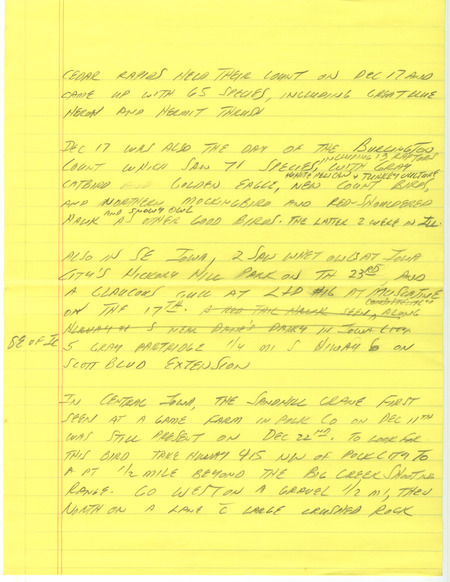 CEDAR RAPIDS HELD THEIR COUNT ON DEC 17 AND
CAME UP WITH 65 SPECIES, INCLUDING GREAT BLUE
HERON AND HERMIT THRUSH
DEC 17 WAS ALSO THE DAY OF THE BURLINGTON
INCLUDING 13 RAPTORS
COUNT WHICH SAW 71 SPECIES, WITH GRAY
WHITE PELICAN & TURKEY VULTURE
CATBIRD GOLDEN EAGLE, NEW COUNT BIRD,
AND NORTHERN MOCKINGBIRD AND RED-SHOULDERED
AND SNOWY OWL
HAWK AS OTHER GOOD BIRDS. THE LATTER 2 WERE IN ILL.
ALSO IN SE IOWA, 2 SAW WHET OWLS AT IOWA
CITY'S HICKORY HILL PARK ON TH 23RD AND
A GLAUCOUS GULL AT L&D #16 AT MUSCATINE
ON THE 17TH. A RED TAIL HAWK SEEN, ALONG
HIGHWAY S NEAR DANE'S DAIRY IN IOWA CITY
SE OF IC
5 GRAY PARTRIDGE 1/4 MI S HIWAY 6 ON
SCOTT BLVD EXTENSION
IN CENTRAL IOWA, THE SANDHILL CRANE FIRST
SEEN AT A GAME FARM IN POLK CO ON DEC 11TH
WAS STILL PRESENT ON DEC 22ND. TO LOOK FOR
THIS BIRD TAKE HIWAY 415 NW OF POLK CITY TO
A PT 1/2 MILE BEYOND THE BIG CREEK SHOOTING
RANGE. GO WEST ON A GRAVEL 1/2 MI, THEN
NORTH ON A LANE C LARGE CRUSHED ROCK